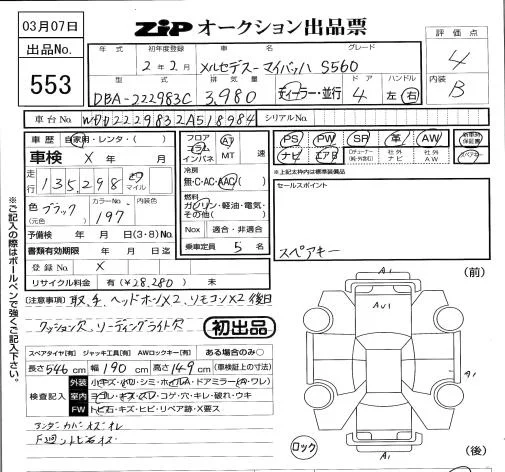 03月07日
ZiP オークション出品票
出品No.
553
評価点
4
内装
B
年式 初年度登録 車名 グレード
2年2月 メルセデス-マイバッハ S560
型式 排気量 ドア ハンドル
DBA-222983C 3,980 ディーラー・並行 4 左 右
車台No. WDD2229832A518984 シリアルNo.
車歴 自家用・レンタ・( )
車検 X 年 月
走行 135,298 キロ マイル
色 ブラック カラーNo. 197 内装色
(元色)
予備検 年 月 日(3・8)No.
書類有効期限 年 月 日迄
登録No. X
リサイクル料金 有(¥28,280) 未
フロア コラム インパネ AT MT 速
冷房 無・C・AC・AAC( )
燃料 ガソリン・軽油・電気・その他( )
Nox 適合・非適合
乗車定員 5 名
PS PW SR 革 AW 新車時保証書
ナビ エアB 社外ナビ 社外AW スペアキー
※上記太枠内は標準装備品
セールスポイント
スペアキー
(注意事項) 取,手,ヘッドホンX2,リモコンX2 後日
クッション穴,リーディングライト穴
初出品
スペアタイヤ[有] ジャッキ工具[有] AWロックキー[有] ある場合のみ○
長さ546cm 幅190cm 高さ149cm (車検証上の寸法)
検査記入
外装 小キズ・小凹・シミ・ホイルA・ドアミラー(A・ワレ)
室内 ヨゴレ・キズ・スレ・コゲ・穴・キレ・破れ・ウキ
FW トビ石・キズ・ヒビ・リペア跡・X要ス
アンダーカバーキズ・オレ
※ご記入の際はボールペンで強くご記入下さい。
(前)
A1
AU1
A1
A1
ロック
(後)